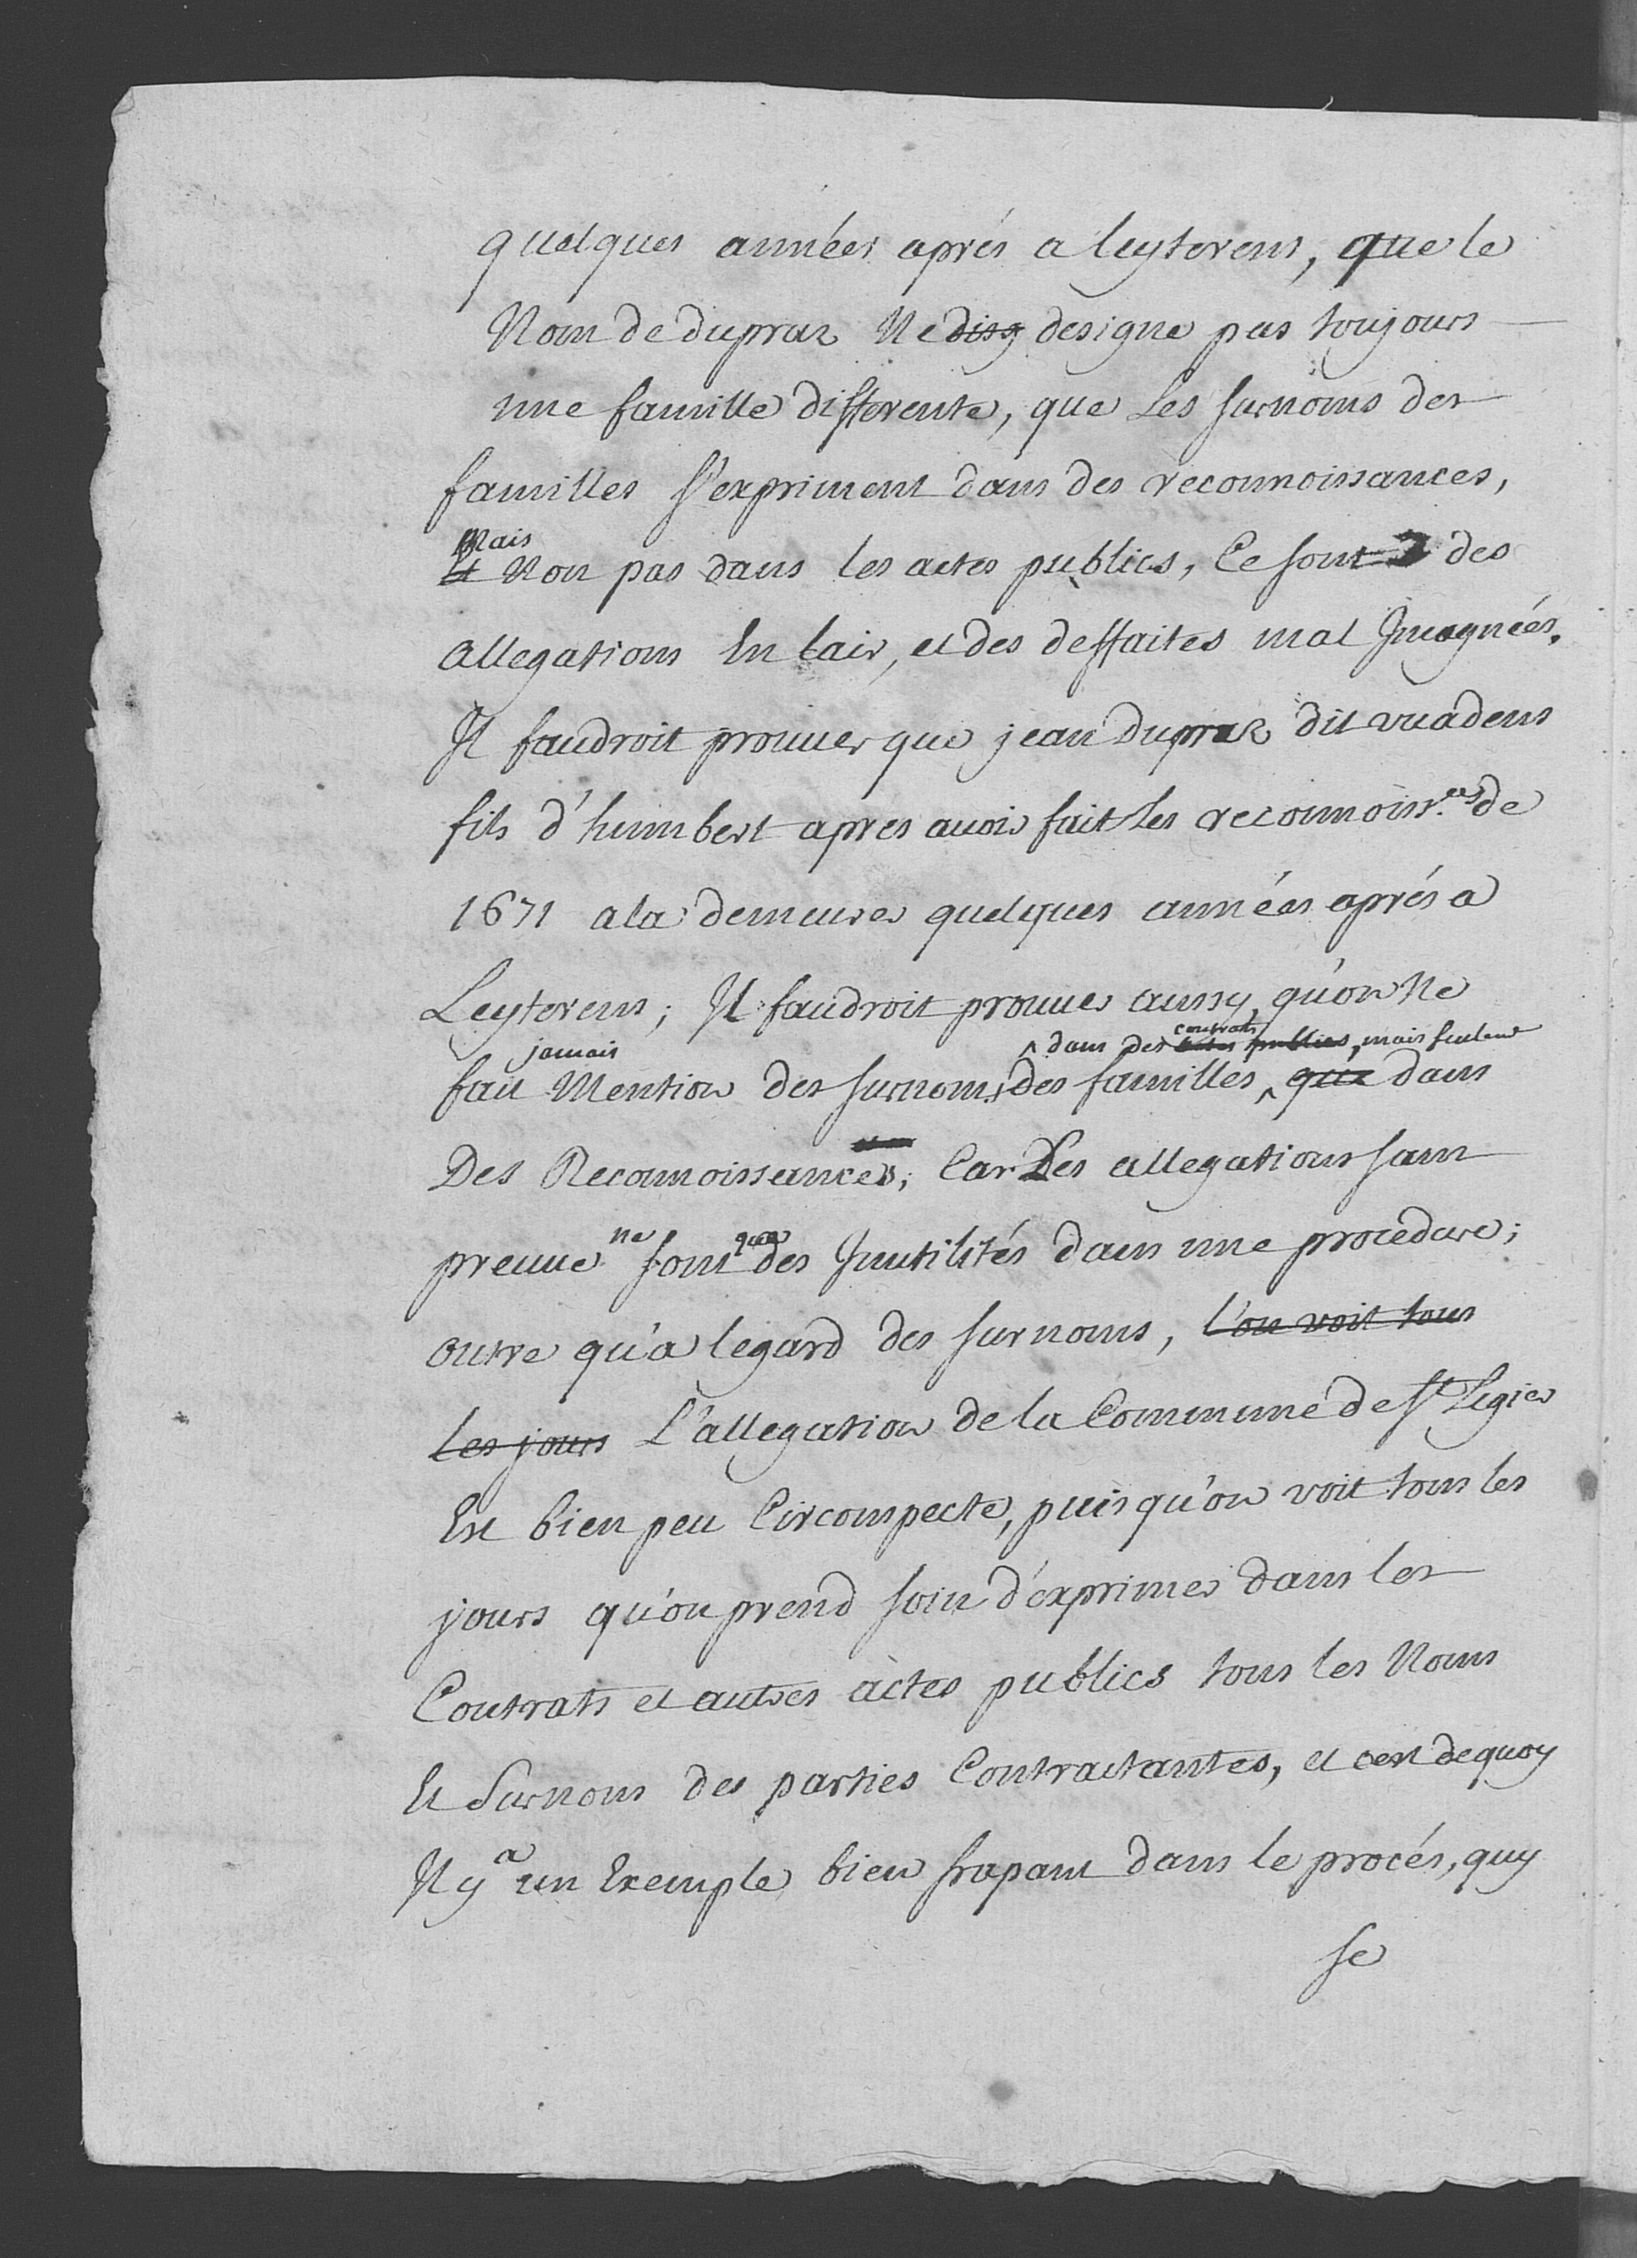 quelques années aprés a leyterens, que le
Nom de dupraz Ne disg designe pas toujours
une famille differente, que Les surnoms des
familles s'expriment dans des reconnoissances,
Mais
Et Non pas dans les actes publics, Ce sont des
allegations En lair, et des deffaites mal Imaginées.
Il faudroit prouver que jean Dupraz dit vuadens
fils d'humbert apres avoir fait les reconnoiss.ces de
1671 ala demeurer quelques années aprés a
Leyterens; Il faudroit prouver aussy qu'on Ne
jamais dans des contrats actes publics, mais seulemt
fait Mention des surnoms des familles que dans
Des Reconnoissances; Car Les allegations sans
preuve ne sont que des Inutilités dans une procedure;
outre qu'a legard des surnoms, l'on voit tous
les jours L'allegation de la Commune de St Legier
Est bien peu Circonspecte, puis qu'on voit tous les
jours qu'on prend soin d'exprimer dans les
Contrats et autres actes publics tous les Noms
Et Surnoms des parties Contractantes, et cest dequoy
Il y a un Exemple bien frapant dans le procés, quy
se